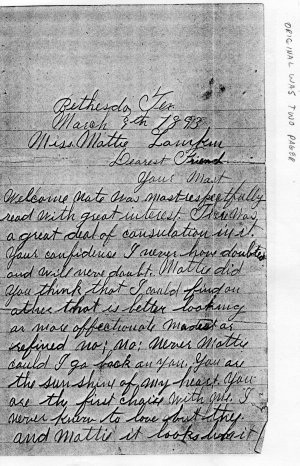 Bethesda, Tex
March 8th 1893
Miss Mattie Lamkin
Dearest Friend
Your Most
Welcome note was most respectfully
read with great interest. There was
a great deal of consulation in it
Your confidence I never have doubted
and will never doubt. Mattie did
you think that I could find an
other that is better looking
or more affectionate modest or
refined no; no; never Mattie
could I go back on you. You are
the sun shine of my heart. You
are the first choice with me. I
never knew to love but thee
and Mattie it looks
ORIGINAL WAS TWO PAGES